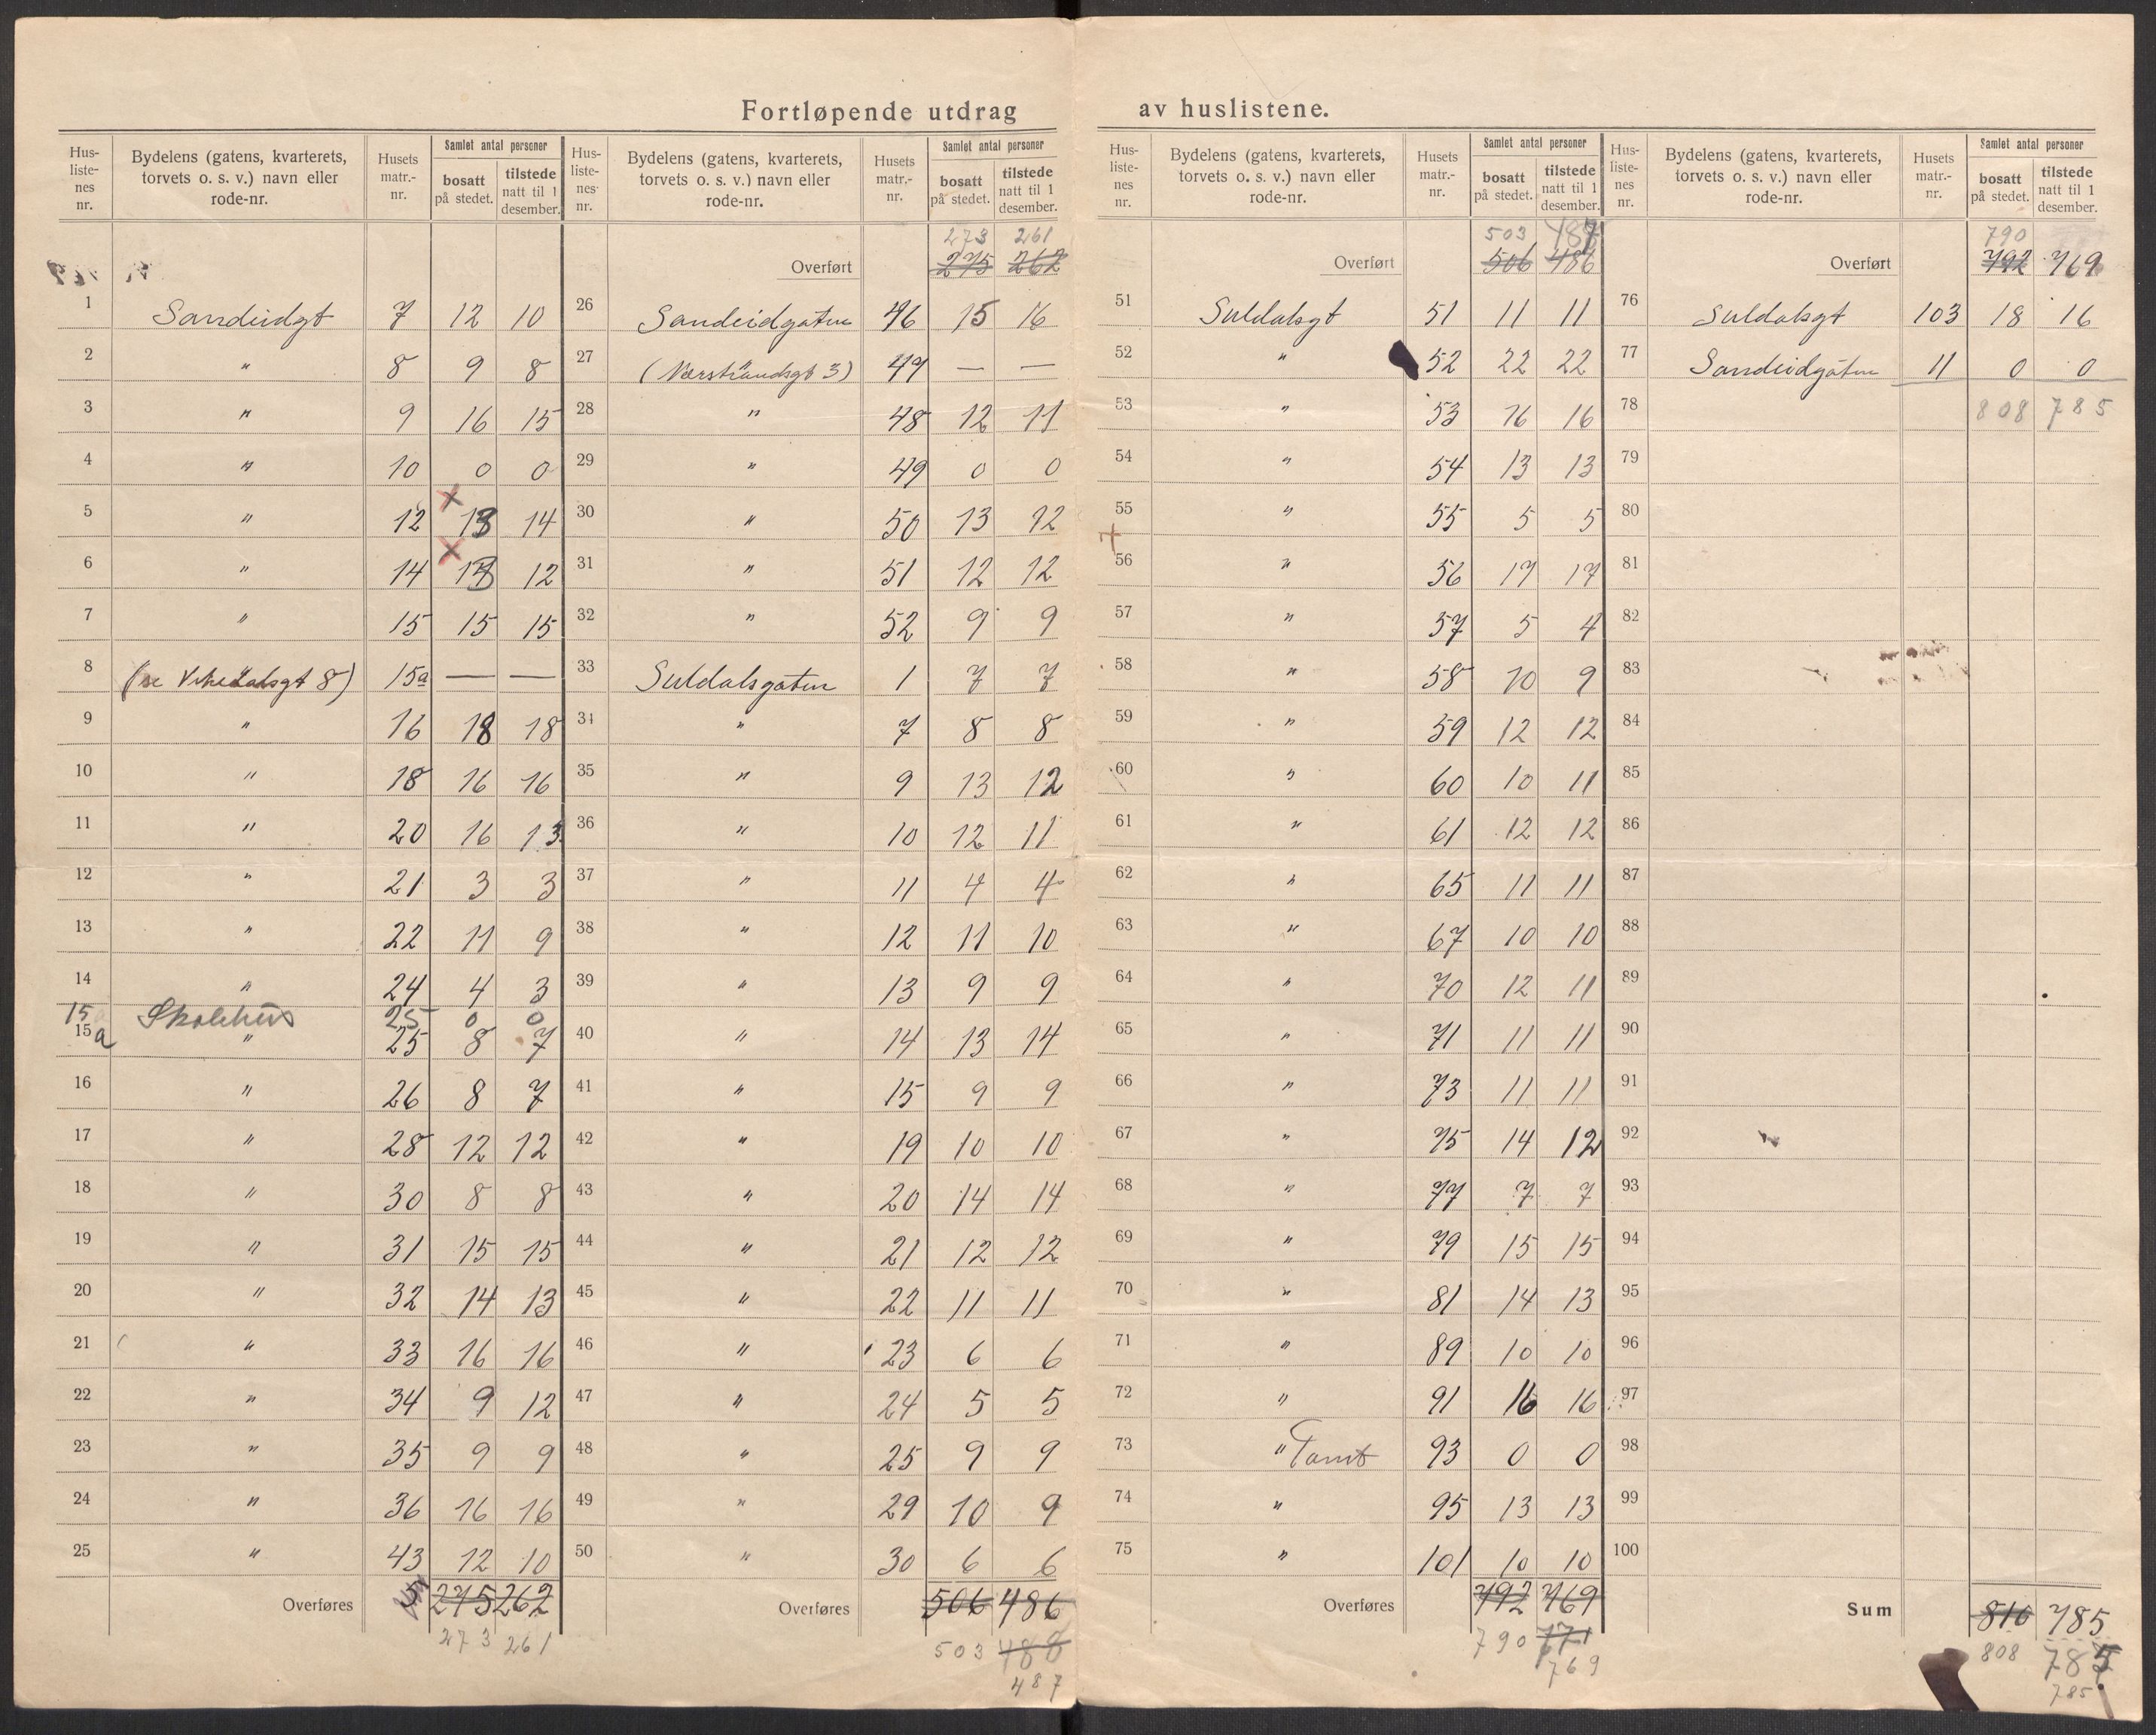 Fortløpende utdrag av huslistene.
Hus-listenes nr. | Bydelens (gatens, kvarterets, torvets o. s. v.) navn eller rode-nr. | Husets matr.-nr. | Samlet antal personer | bosatt på stedet. | tilstede natt til 1 desember.
1 Sandeidgt 7 12 10
2 " 8 9 8
3 " 9 16 15
4 " 10 0 0
5 " 12 13 14
6 " 14 13 12
7 " 15 15 15
8 (se Vikedalsgt 8) 15a — —
9 " 16 18 18
10 " 18 16 16
11 " 20 16 13
12 " 21 3 3
13 " 22 11 9
14 " 24 4 3
15 Skolehus 25 0 0
15a " 25 8 7
16 " 26 8 7
17 " 28 12 12
18 " 30 8 8
19 " 31 15 15
20 " 32 14 13
21 " 33 16 16
22 " 34 9 12
23 " 35 9 9
24 " 36 16 16
25 " 43 12 10
Overføres 275 262
273 261
Hus-listenes nr. | Bydelens (gatens, kvarterets, torvets o. s. v.) navn eller rode-nr. | Husets matr.-nr. | Samlet antal personer | bosatt på stedet. | tilstede natt til 1 desember.
273 261
Overført 275 262
26 Sandeidgaten 46 15 16
27 (Nærstrandsgt 3) 47 — —
28 " 48 12 11
29 " 49 0 0
30 " 50 13 12
31 " 51 12 12
32 " 52 9 9
33 Suldalsgaten 1 7 7
34 " 7 8 8
35 " 9 13 12
36 " 10 12 11
37 " 11 4 4
38 " 12 11 10
39 " 13 9 9
40 " 14 13 14
41 " 15 9 9
42 " 19 10 10
43 " 20 14 14
44 " 21 12 12
45 " 22 11 11
46 " 23 6 6
47 " 24 5 5
48 " 25 9 9
49 " 29 10 9
50 " 30 6 6
Overføres 506 486
503 488
487
Hus-listenes nr. | Bydelens (gatens, kvarterets, torvets o. s. v.) navn eller rode-nr. | Husets matr.-nr. | Samlet antal personer | bosatt på stedet. | tilstede natt til 1 desember.
503 487
Overført 506 486
51 Suldalsgt 51 11 11
52 " 52 22 22
53 " 53 16 16
54 " 54 13 13
55 " 55 5 5
56 " 56 17 17
57 " 57 5 4
58 " 58 10 9
59 " 59 12 12
60 " 60 10 11
61 " 61 12 12
62 " 65 11 11
63 " 67 10 10
64 " 70 12 11
65 " 71 11 11
66 " 73 11 11
67 " 75 14 12
68 " 77 7 7
69 " 79 15 15
70 " 81 14 13
71 " 89 10 10
72 " 91 16 16
73 " Tomt 93 0 0
74 " 95 13 13
75 " 101 10 10
Overføres 792 769
790 771
769
Hus-listenes nr. | Bydelens (gatens, kvarterets, torvets o. s. v.) navn eller rode-nr. | Husets matr.-nr. | Samlet antal personer | bosatt på stedet. | tilstede natt til 1 desember.
790
Overført 792 769
76 Suldalsgt 103 18 16
77 Sandeidgaten 11 0 0
78 808 785
79
80
81
82
83
84
85
86
87
88
89
90
91
92
93
94
95
96
97
98
99
100
Sum 810 785
808 785
785